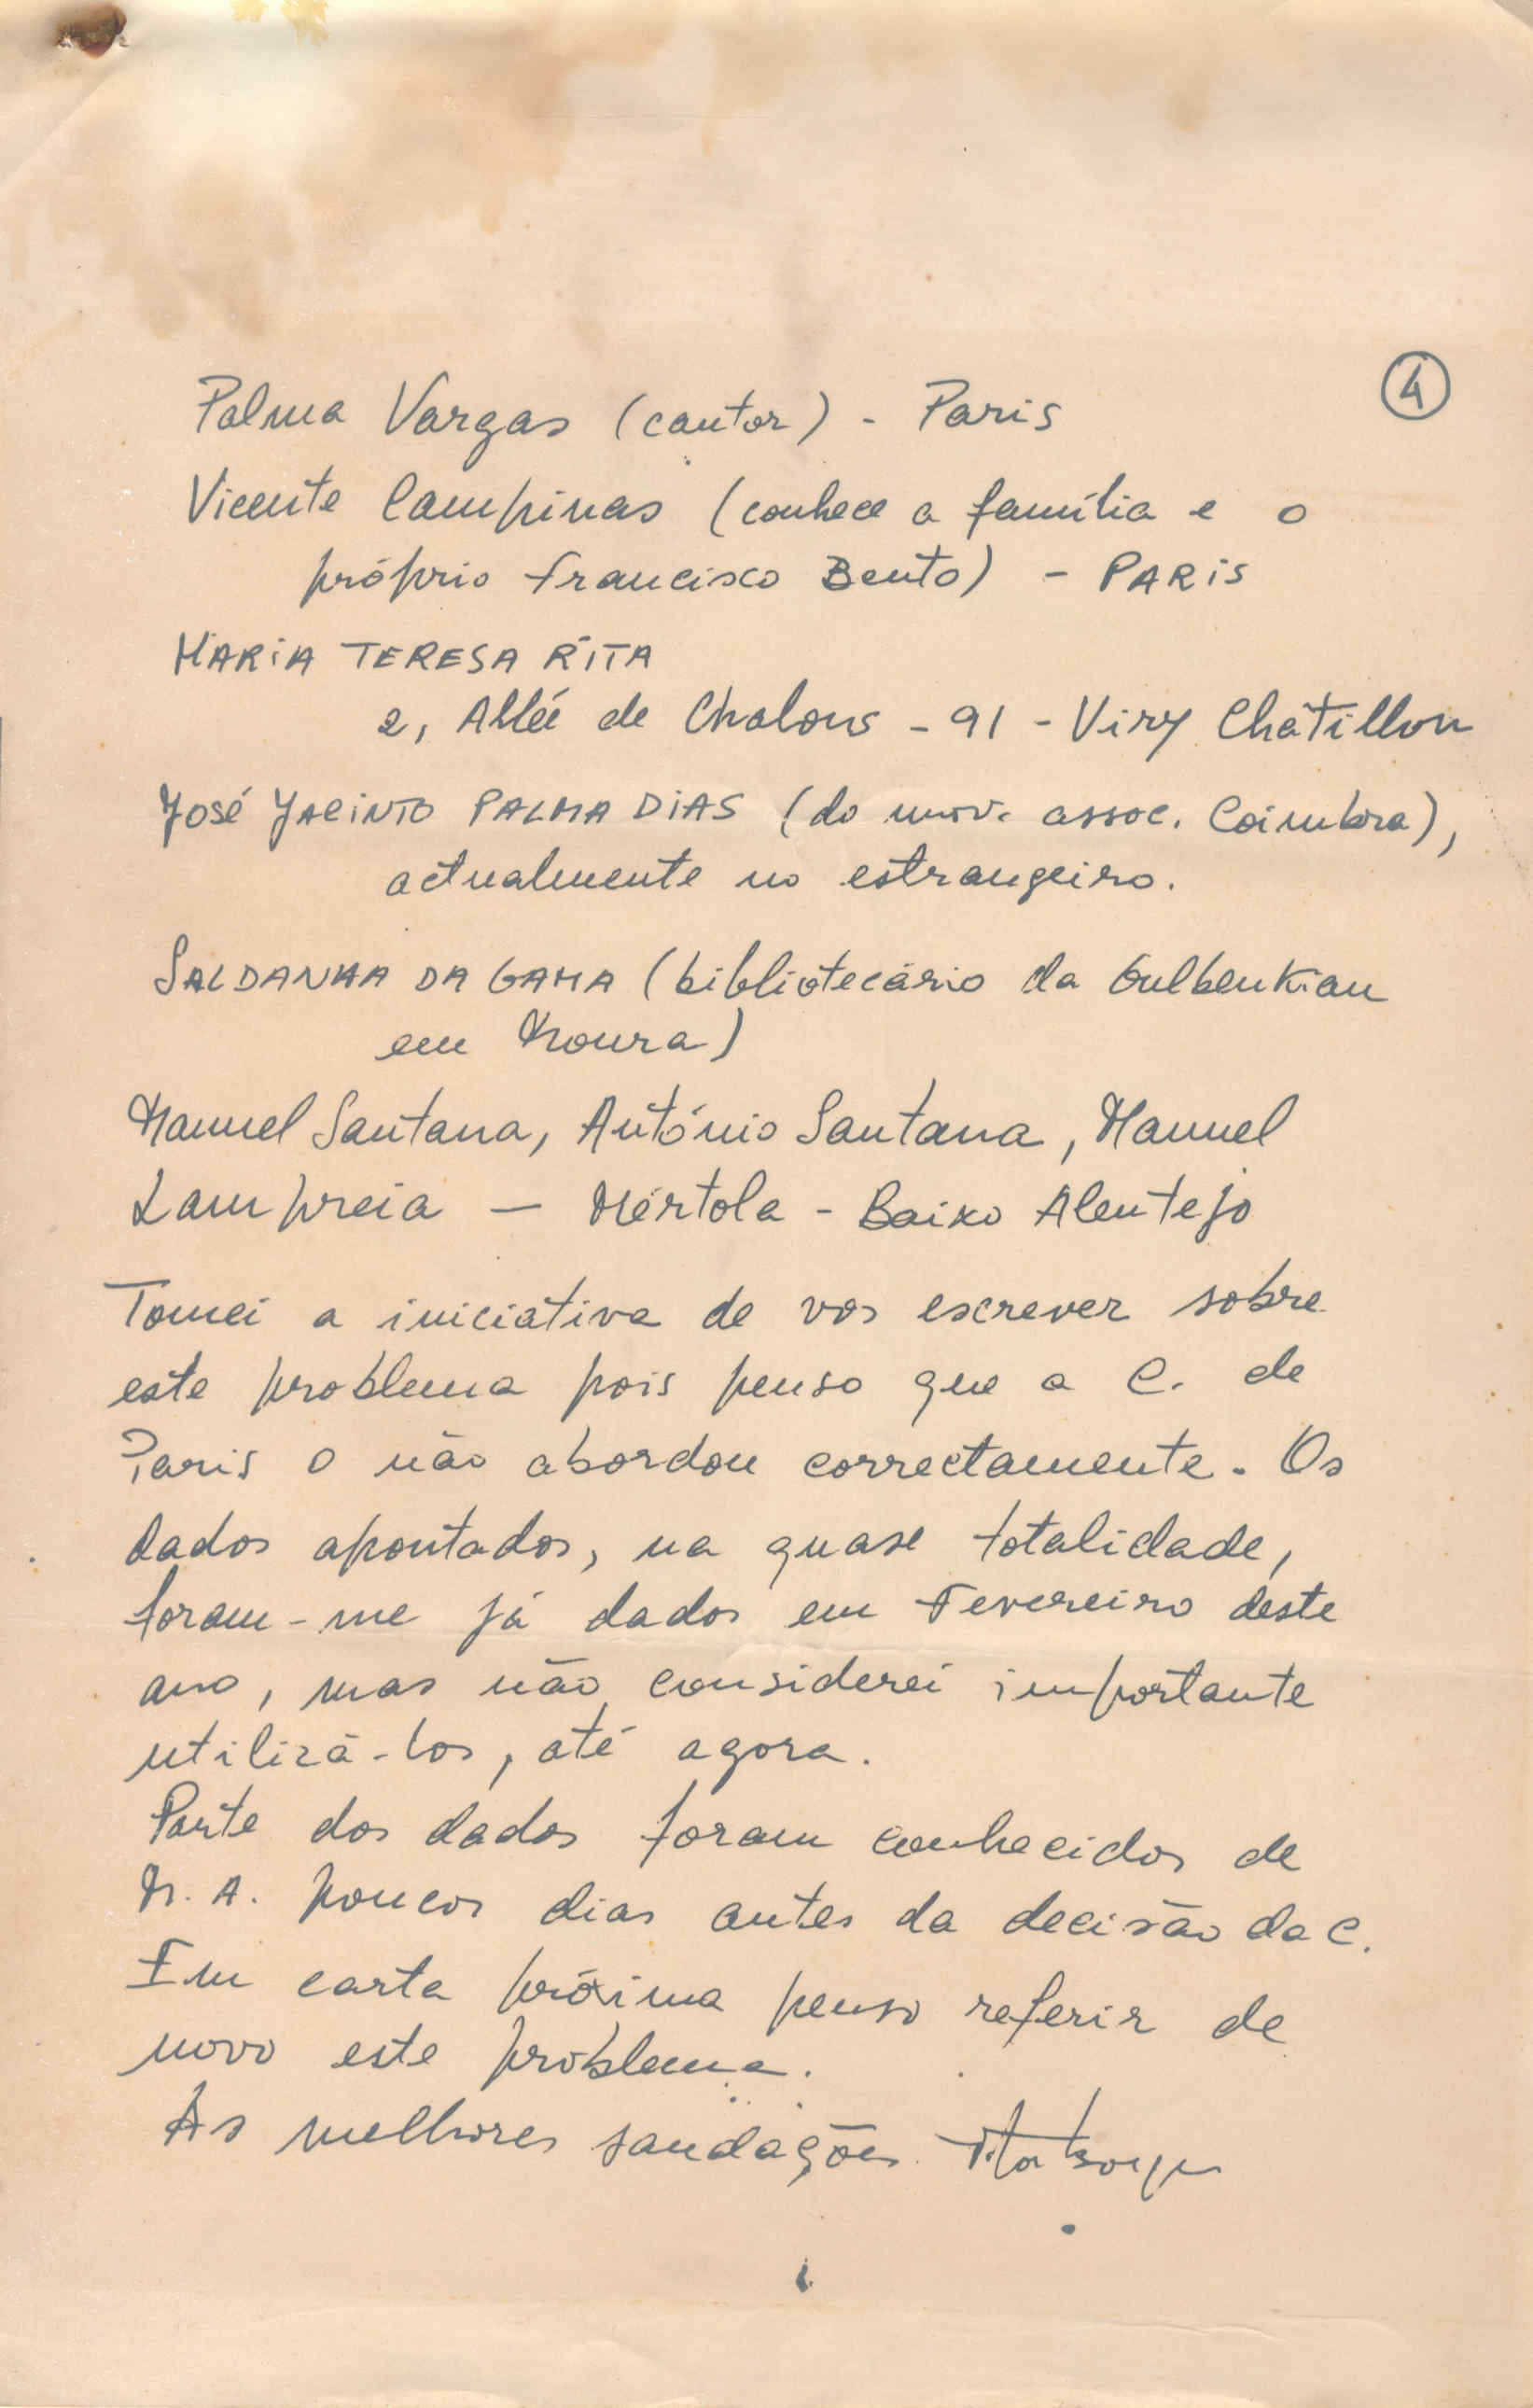 4
Palma Vargas (cantor) - Paris
Vicente Campinas (conhece a família e o
próprio Francisco Bento) - PARIS
MARIA TERESA RITA
2, Allée de Chalons - 91 - Viry Châtillon
José JACINTO PALMA DIAS (do mov. assoc. Coimbra),
actualmente no estrangeiro.
SALDANHA DA GAMA (bibliotecário da Gulbenkian
em Moura)
Manuel Santana, António Santana, Manuel
Lampreia — Mértola - Baixo Alentejo
Tomei a iniciativa de vos escrever sobre
este problema pois penso que a C. de
Paris o não abordou correctamente. Os
dados apontados, na quase totalidade,
foram-me já dados em Fevereiro deste
ano, mas não considerei importante
utilizá-los, até agora.
Parte dos dados foram conhecidos de
M. A. poucos dias antes da decisão da C.
Em carta próxima penso referir de
novo este problema.
As melhores saudações